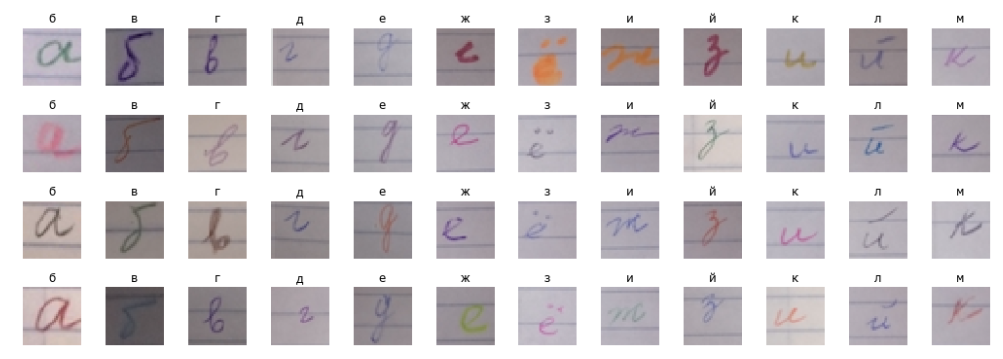 б в г д е ж з и й к л м
а б в г д е ё ж з и й к
б в г д е ж з и й к л м
а б в г д е ё ж з и й к
б в г д е ж з и й к л м
а б в г д е ё ж з и й к
б в г д е ж з и й к л м
а б в г д е ё ж з и й к